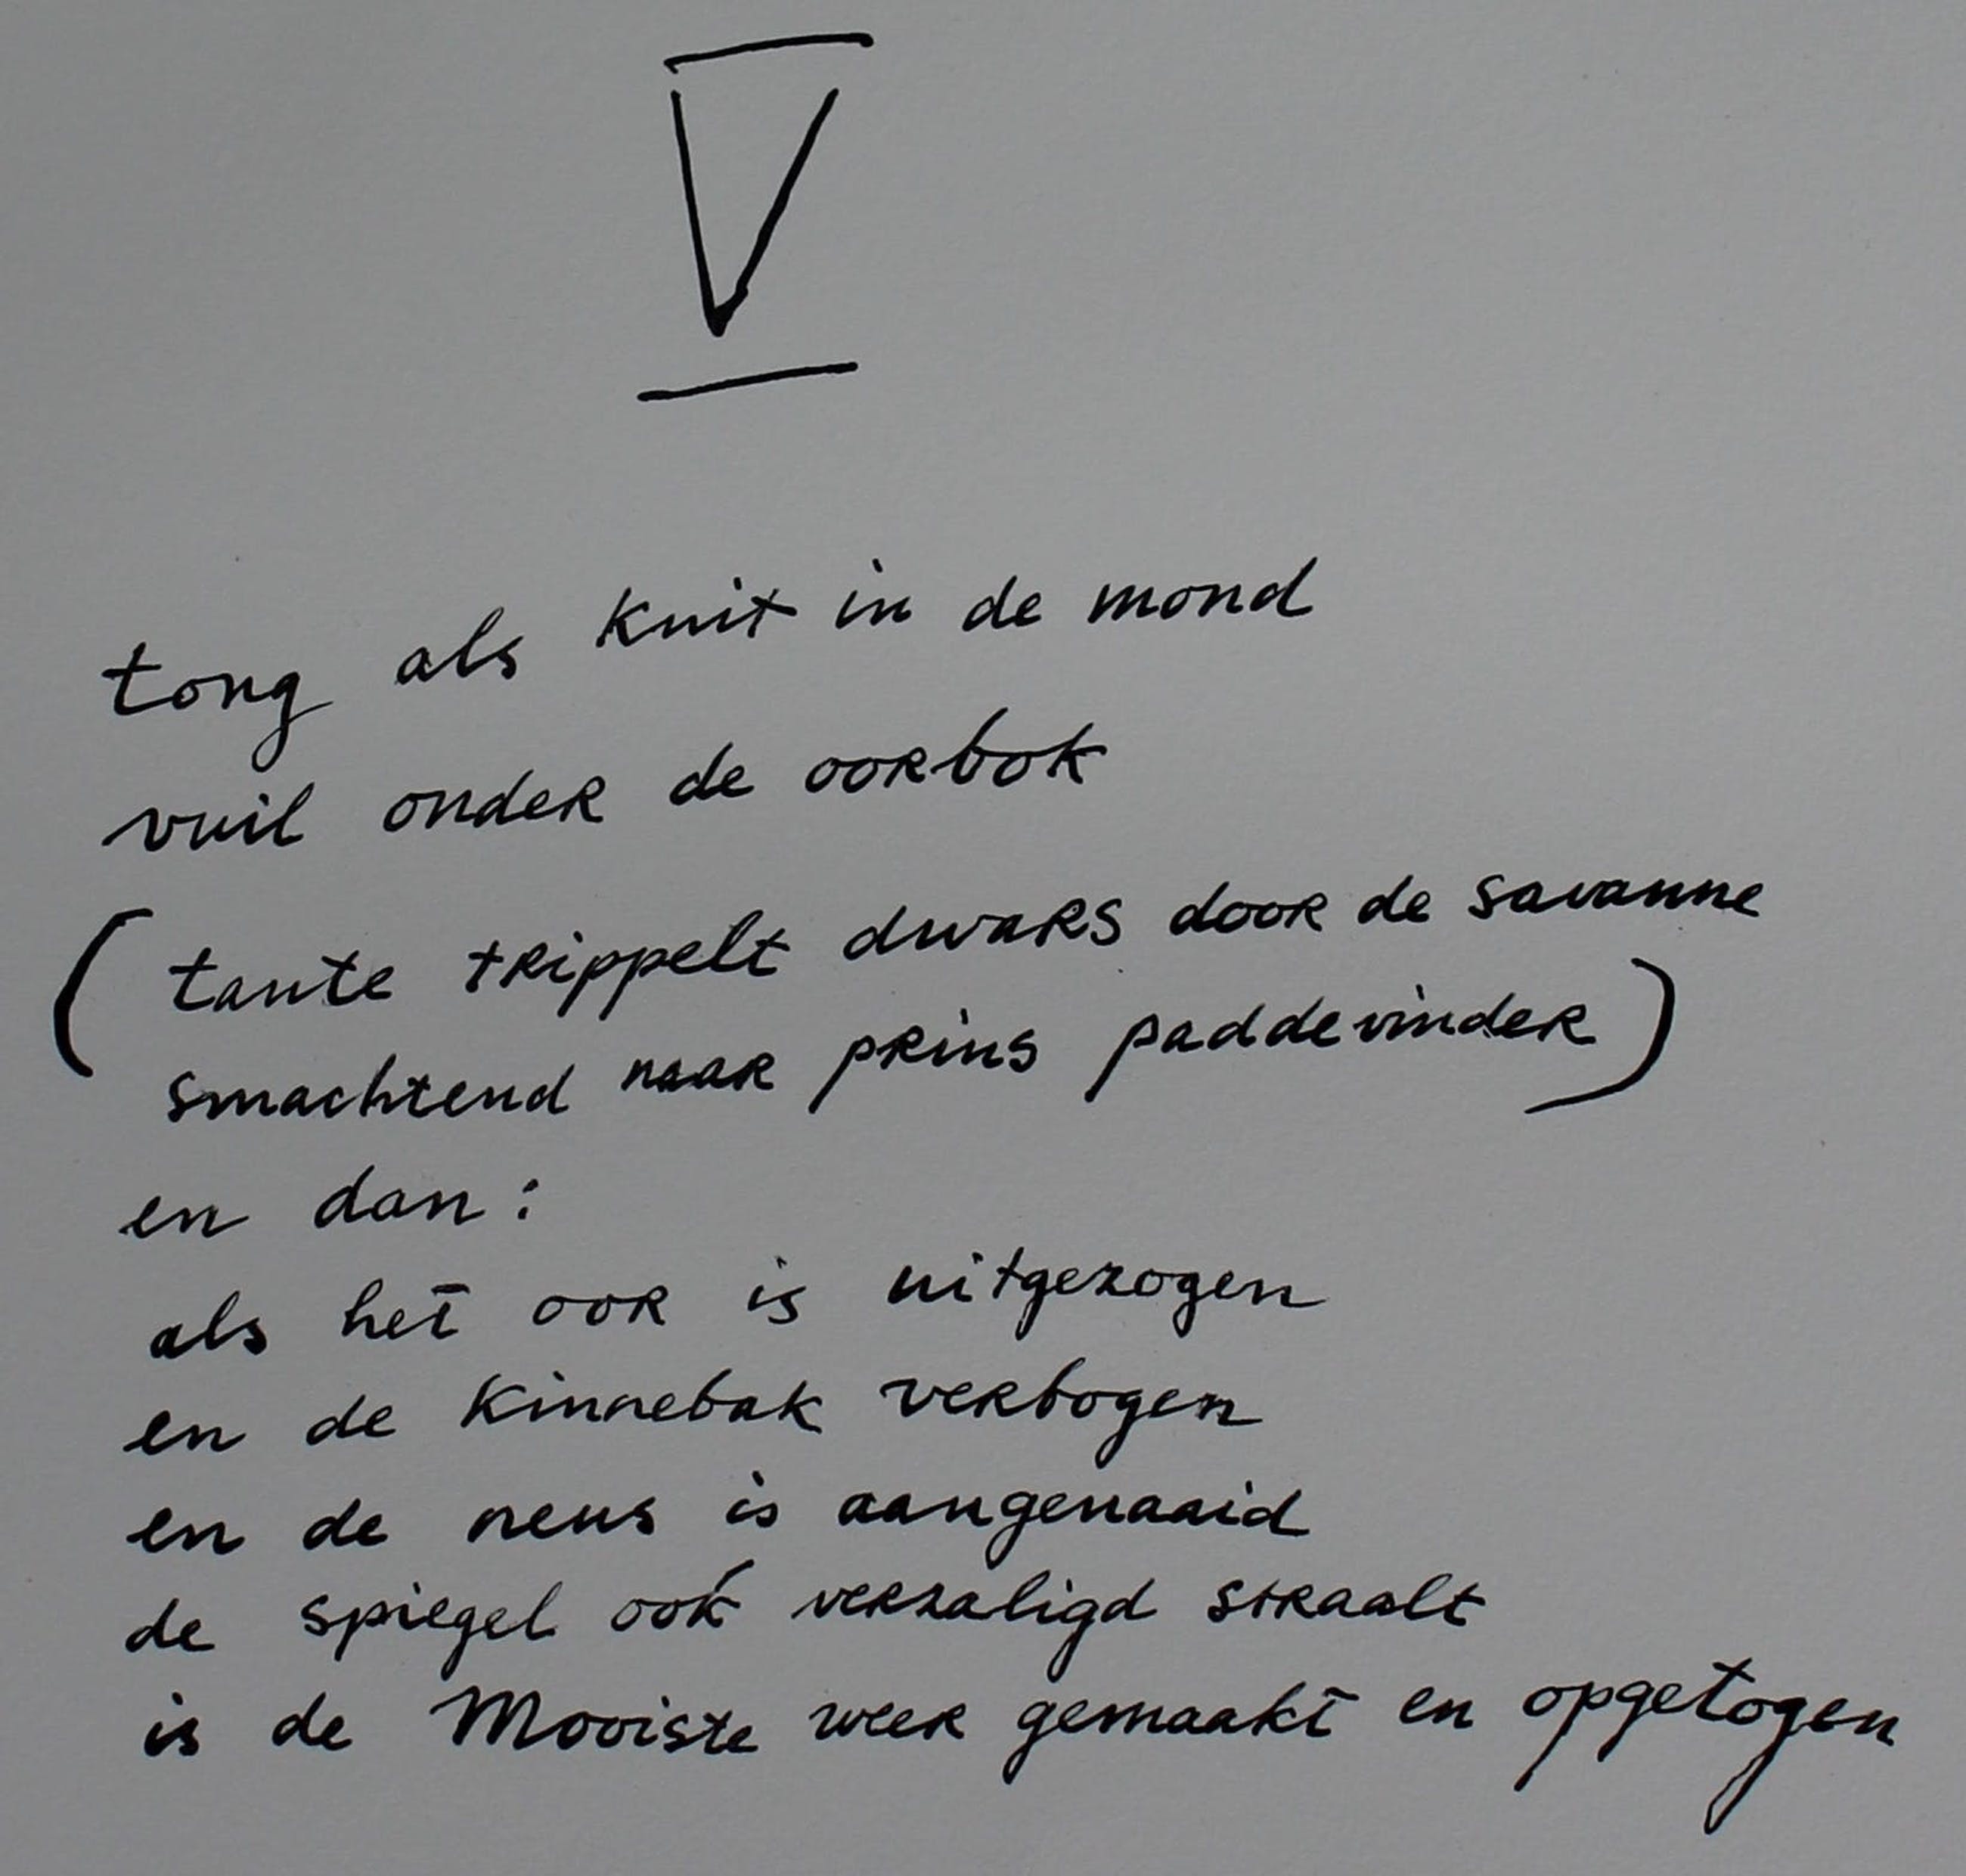 V
tong als kuit in de mond
vuil onder de oorbok
(tante trippelt dwars door de savanne
smachtend naar prins paddevinder)
en dan:
als het oor is uitgezogen
en de kinnebak verbogen
en de neus is aangenaaid
de spiegel oók verzaligd straalt
is de Mooiste weer gemaakt en opgetogen